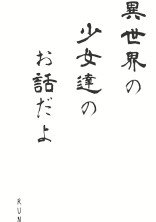 異世界の
少女達の
お話だよ
RUN